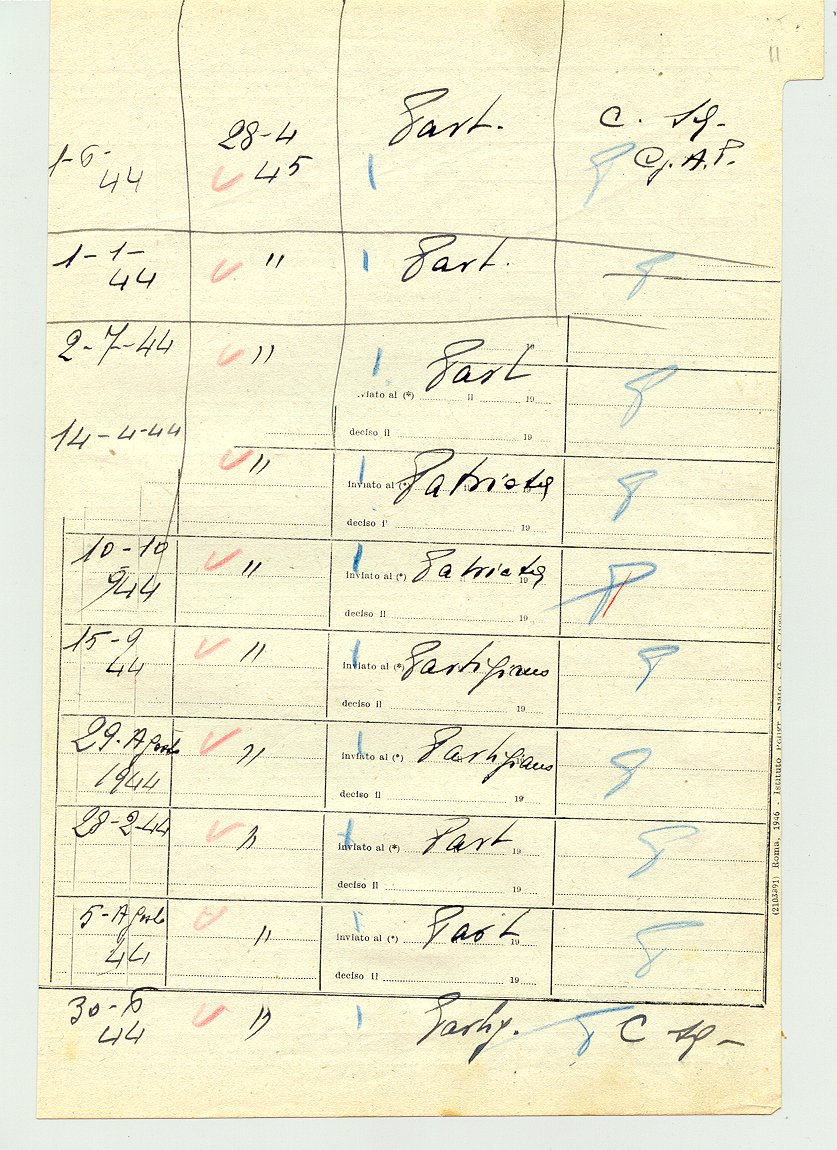 11
1-6- 28-4 Part. C.
44 45 G. A. P.
1-1- " Part.
44
2-7-44 " Part 19
inviato al (*) il 19
14-4-44 deciso il 19
" inviato al (*) Patriota 19
deciso il 19
10-10 " inviato al (*) Patriota 19
944 deciso il 19
15-9 " inviato al (*) Partigiano
44 deciso il 19
29-Agosto " inviato al (*) Partigiano
1944 deciso il 19
28-2-44 " inviato al (*) Part 19
deciso il 19
5-Agosto " inviato al (*) Part 19
44 deciso il 19
30-6 " Partig. C
44
(2103891) Roma, 1946 - Istituto Poligr. Stato - G. C.